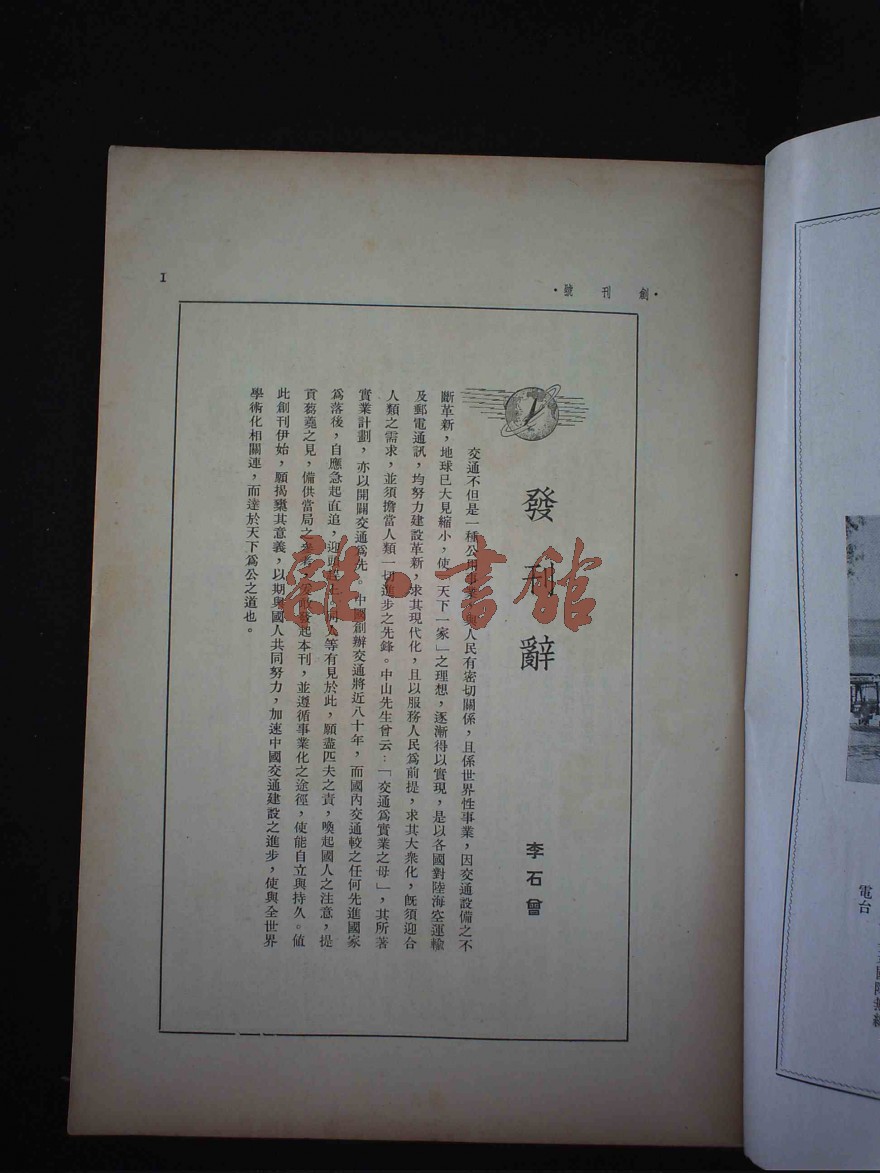 ·創刊號·
1
發刊辭
李石曾
交通不但是一種公用事業，與人民有密切關係，且係世界性事業，因交通設備之不
斷革新，地球已大見縮小，使「天下一家」之理想，逐漸得以實現，是以各國對陸海空運輸
及郵電通訊，均努力建設革新，求其現代化，且以服務人民爲前提，求其大衆化，旣須迎合
人類之需求，並須擔當人類一切進步之先鋒。中山先生曾云：「交通爲實業之母」，其所著
實業計劃，亦以開闢交通爲先，中國創辦交通將近八十年，而國內交通較之任何先進國家
爲落後，自應急起直追，迎頭趕上，同人等有見於此，願盡匹夫之責，喚起國人之注意，提
貢芻蕘之見，備供當局之參考，爰敢發起本刊，並遵循事業化之途徑，使能自立與持久。值
此創刊伊始，願揭櫫其意義，以期與國人共同努力，加速中國交通建設之進步，使與全世界
學術化相關連，而達於天下爲公之道也。
雜·書館
電台